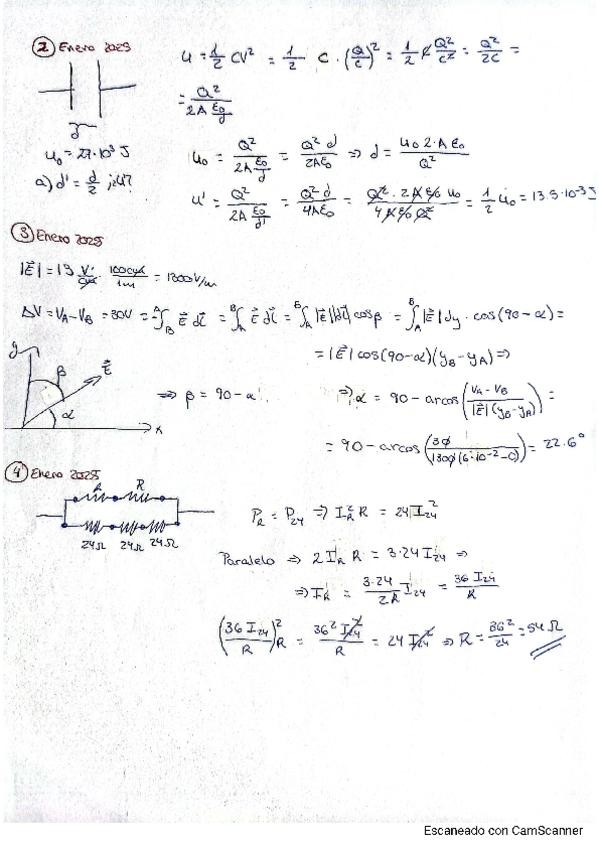 ② Enero 2025
U = 1/2 CV² = 1/2 C · (Q/C)² = 1/2 C Q²/C² = Q²/2C =
= Q²/(2A ε₀/d)
d
U₀ = 27·10⁻³ J
a) d' = d/2 ¿U'?
U₀ = Q²/(2A ε₀/d) = Q² d/(2Aε₀) ⇒ d = U₀ 2·A ε₀/Q²
U' = Q²/(2A ε₀/d') = Q² d/(4Aε₀) = Q² · 2Aε₀ U₀/(4Aε₀ Q²) = 1/2 U₀ = 13.5·10⁻³ J
③ Enero 2025
|E⃗| = 13 V/cm · 100cm/1m = 1300V/m
ΔV = V_A - V_B = 30V = -∫_B^A E⃗ dl⃗ = ∫_A^B E⃗ dl⃗ = ∫_A^B |E⃗||dl⃗| cosβ = ∫_A^B |E⃗| dy · cos(90-α) =
= |E⃗| cos(90-α)(y_B - y_A) ⇒
y
β
E⃗
α
x
⇒ β = 90 - α
⇒ α = 90 - arcos((V_A - V_B)/(|E⃗|(y_B - y_A))) =
= 90 - arcos(30/(1300(6·10⁻²-0))) = 22.6°
④ Enero 2025
R R
24Ω 24Ω 24Ω
P_R = P_24 ⇒ I_R² R = 24 I_24²
Paralelo ⇒ 2 I_R R = 3·24 I_24 ⇒
⇒ I_R = 3·24/2R I_24 = 36 I_24/R
(36 I_24/R)² R = 36² I_24²/R = 24 I_24² ⇒ R = 36²/24 = 54 Ω
Escaneado con CamScanner